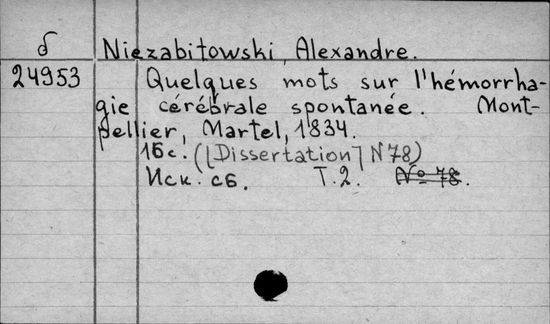 δ Niezabitowski, Alexandre.
24953 Quelques mots sur l'hémorrha-
gie cérébrale spontanée. Mont-
pellier, Martel, 1834.
16с. ([Dissertation] N 78)
Иск. сб. Т. 2. № 78.